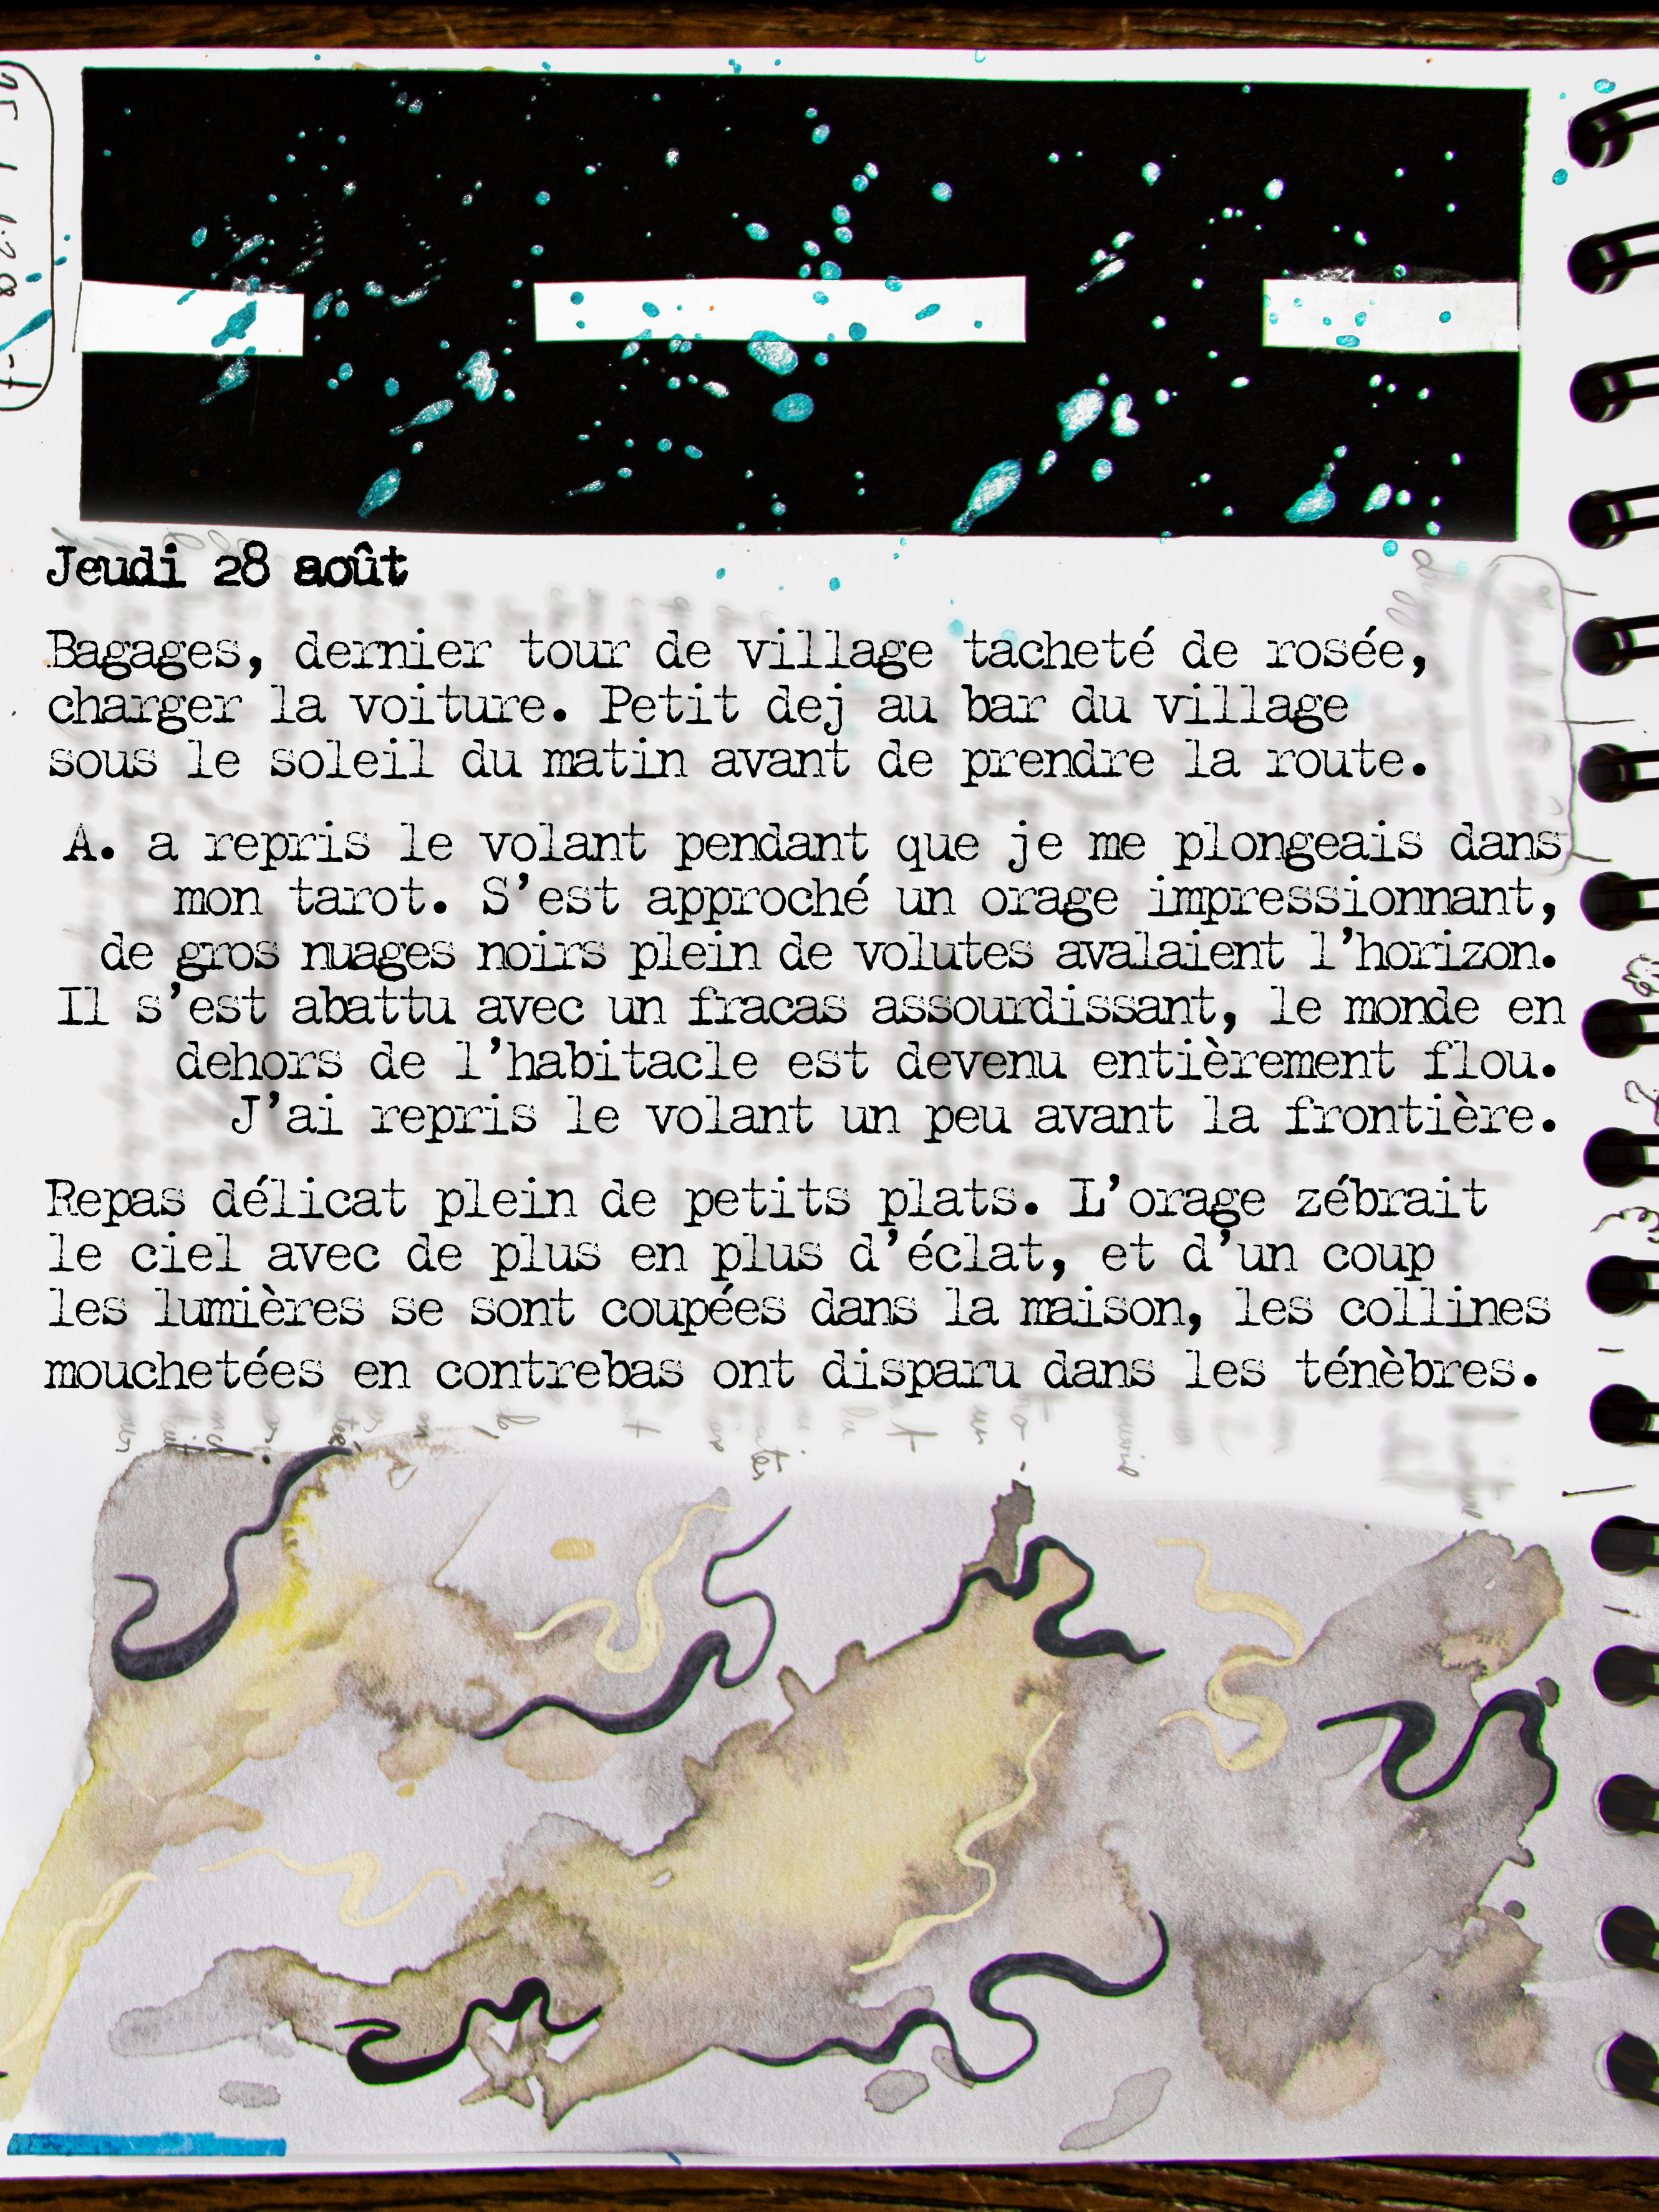 Jeudi 28 août
Bagages, dernier tour de village tacheté de rosée,
charger la voiture. Petit dej au bar du village
sous le soleil du matin avant de prendre la route.
A. a repris le volant pendant que je me plongeais dans
mon tarot. S'est approché un orage impressionnant,
de gros nuages noirs plein de volutes avalaient l'horizon.
Il s'est abattu avec un fracas assourdissant, le monde en
dehors de l'habitacle est devenu entièrement flou.
J'ai repris le volant un peu avant la frontière.
Repas délicat plein de petits plats. L'orage zébrait
le ciel avec de plus en plus d'éclat, et d'un coup
les lumières se sont coupées dans la maison, les collines
mouchetées en contrebas ont disparu dans les ténèbres.